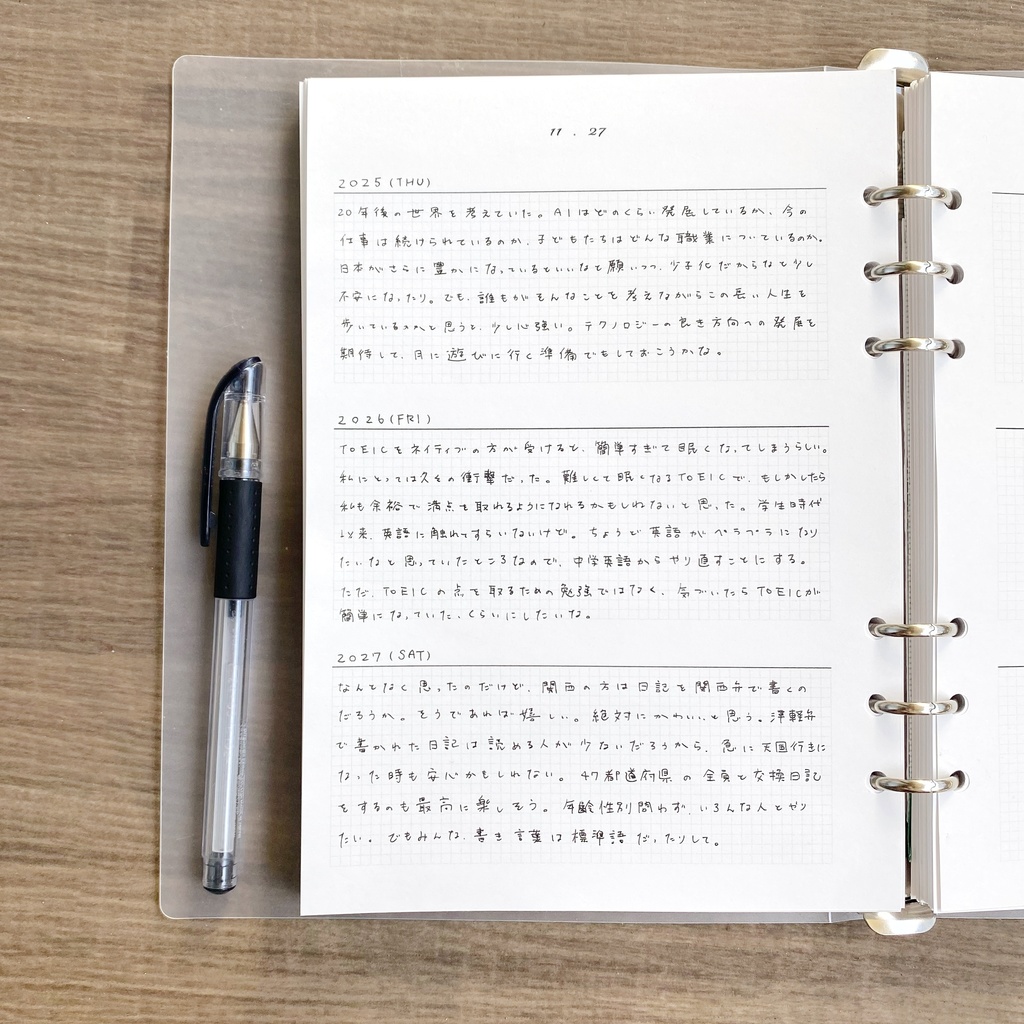 11 . 27
2025 (THU)
20年後の世界を考えていた。AIはどのくらい発展しているか、今の
仕事は続けられているのか、子どもたちはどんな職業についているのか。
日本がさらに豊かになっているといいなと願いつつ、少子化だからなと少し
不安になったり。でも、誰もがそんなことを考えながらこの長い人生を
歩いているのかと思うと、少し心強い。テクノロジーの良き方向への発展を
期待して、月に遊びに行く準備でもしておこうかな。
2026 (FRI)
TOEICをネイティブの方が受けると、簡単すぎて眠くなってしまうらしい。
私にとっては久々の衝撃だった。難しくて眠くなるTOEICで、もしかしたら
私も余裕で満点を取れるようになれるかもしれないと思った。学生時代
以来、英語に触れてすらいないけど。ちょうど英語がペラペラになり
たいなと思っていたところなので、中学英語からやり直すことにする。
ただ、TOEICの点を取るための勉強ではなく、気づいたらTOEICが
簡単になっていた、くらいにしたいな。
2027 (SAT)
なんとなく思ったのだけど、関西の方は日記を関西弁で書くの
だろうか。そうであれば嬉しい。絶対にかわいいと思う。津軽弁
で書かれた日記は読める人が少ないだろうから、急に天国行きに
なった時も安心かもしれない。47都道府県の全員と交換日記
をするのも最高に楽しそう。年齢性別問わず、いろんな人とやり
たい。でもみんな、書き言葉は標準語だったりして。